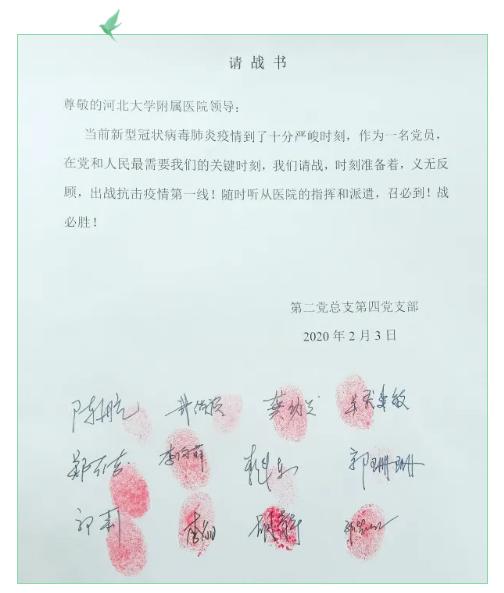 请战书
尊敬的河北大学附属医院领导：
当前新型冠状病毒肺炎疫情到了十分严峻时刻，作为一名党员，
在党和人民最需要我们的关键时刻，我们请战，时刻准备着，义无反
顾，出战抗击疫情第一线！随时听从医院的指挥和派遣，召必到！战
必胜！
第二党总支第四党支部
2020年2月3日
郭珊珊